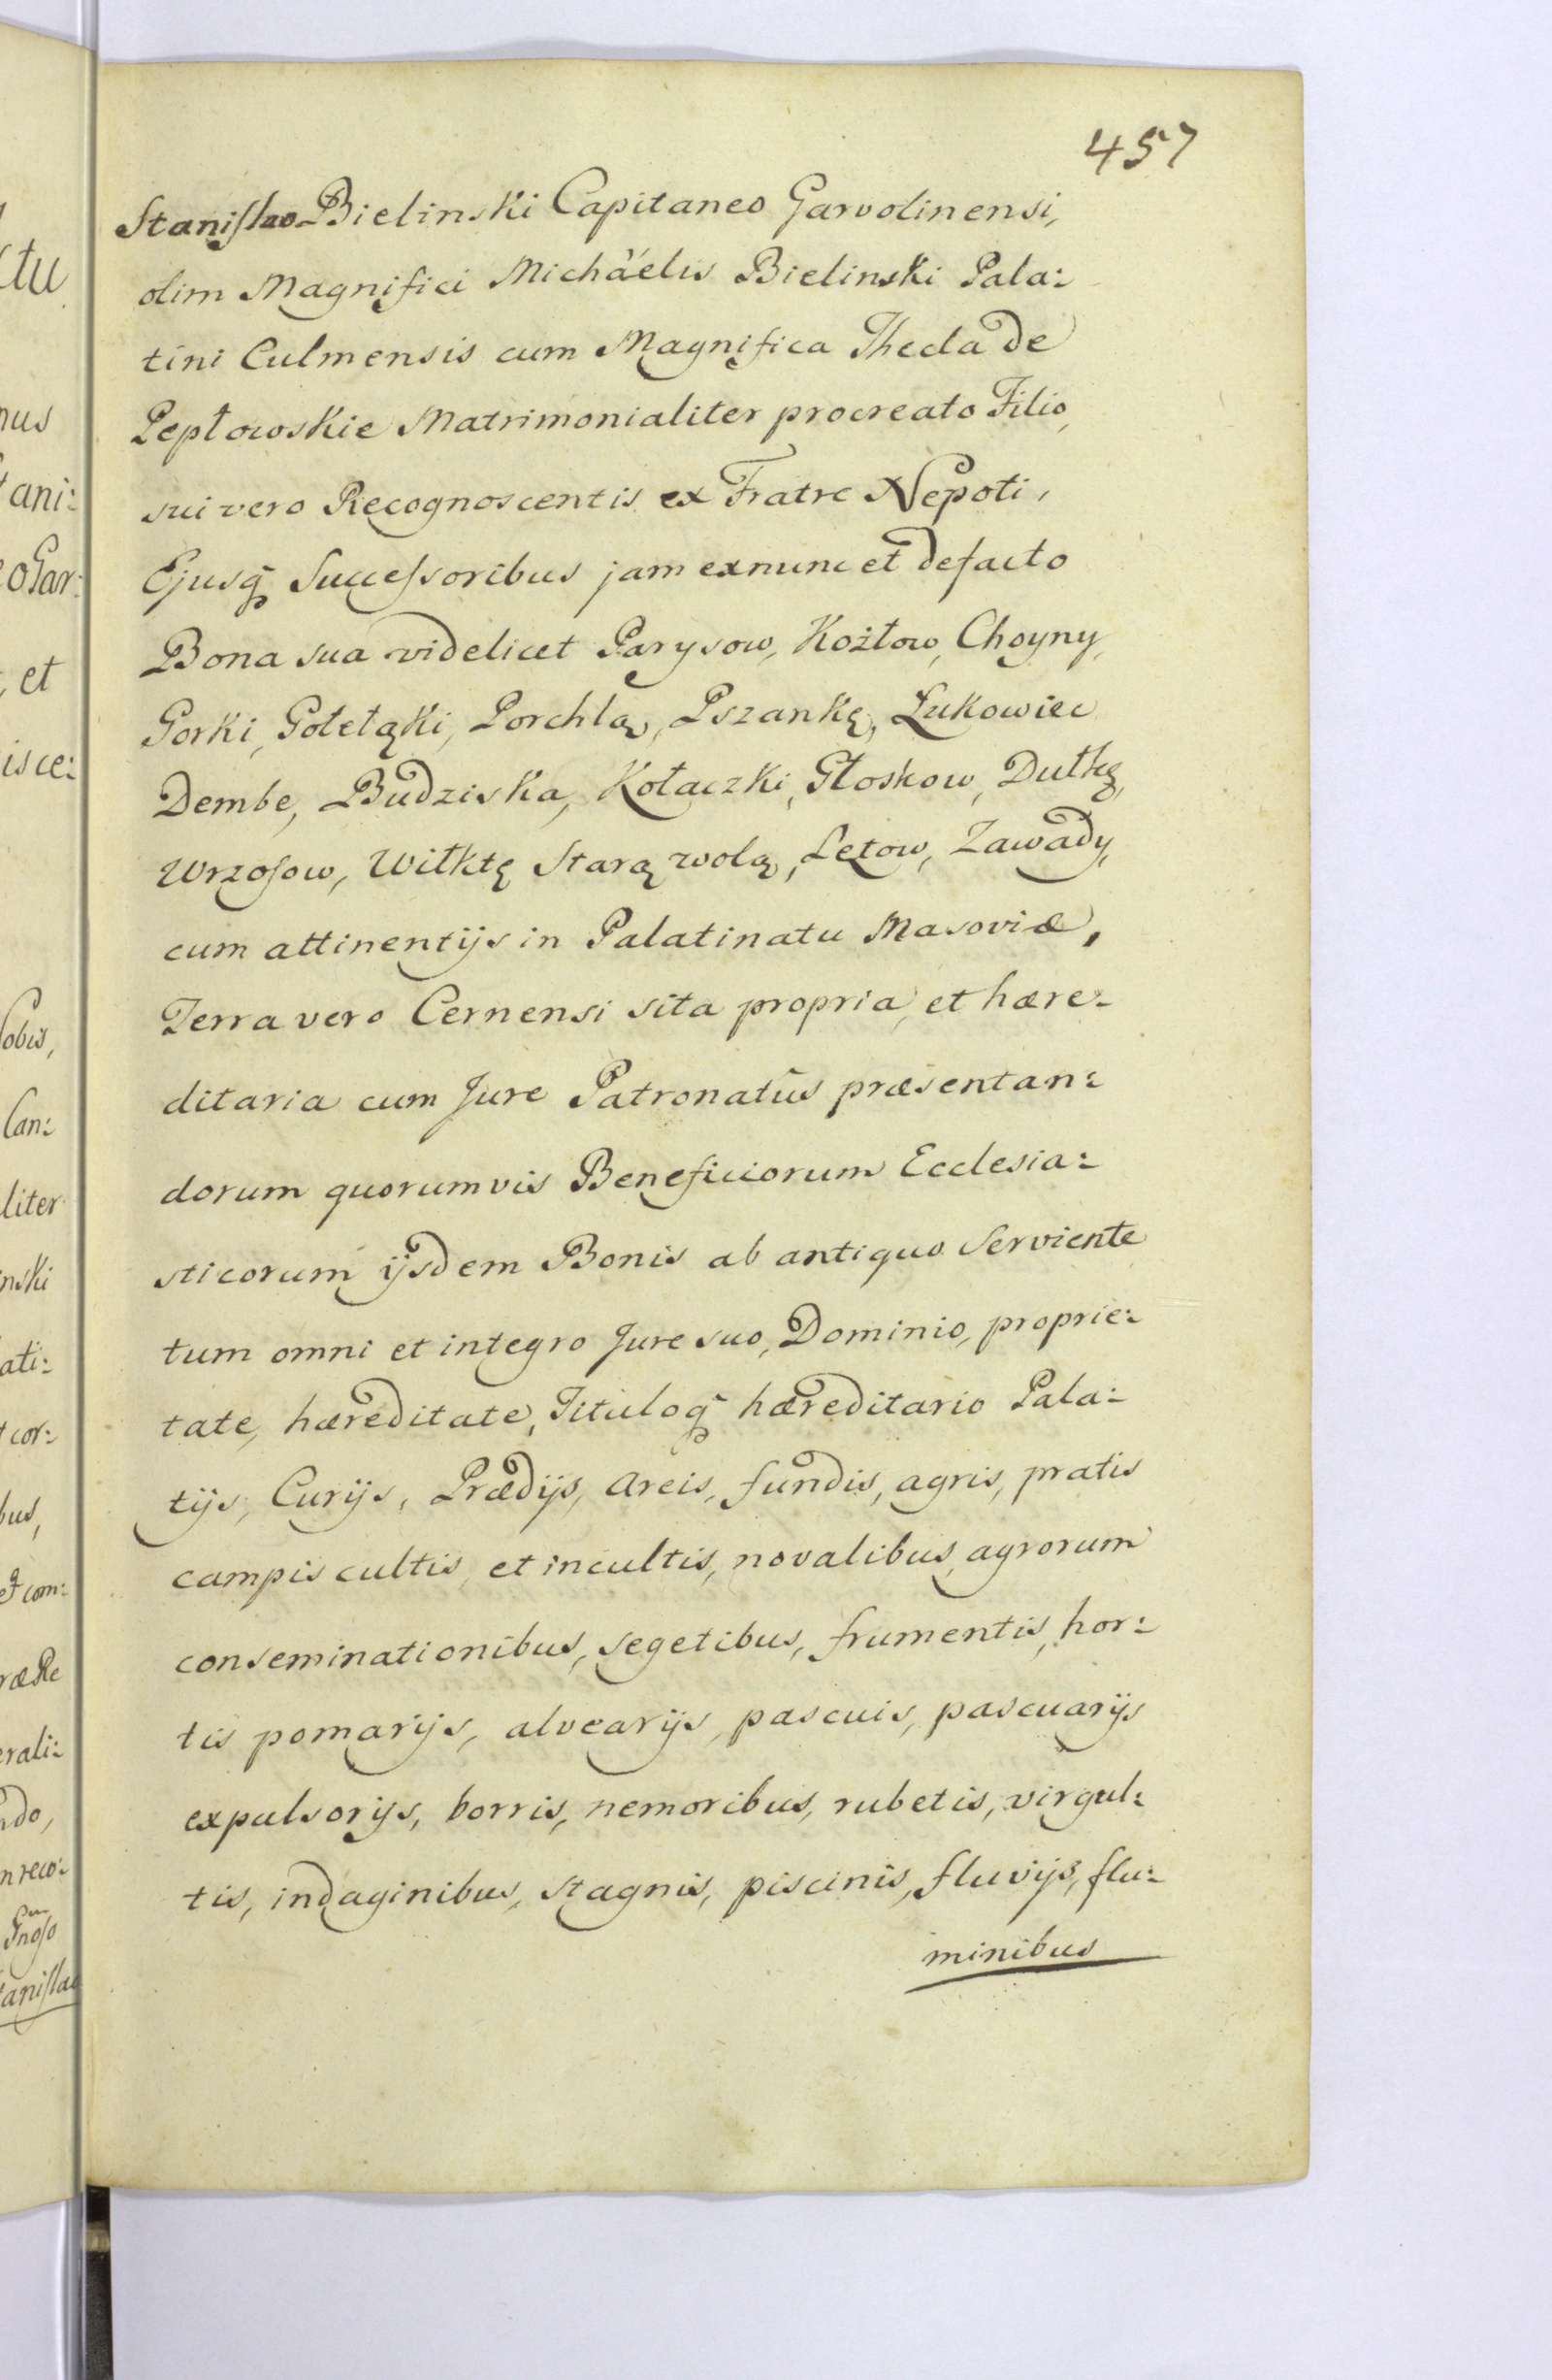 457
Stanislao Bielinski Capitaneo Garvolinensi,
olim Magnifici Michäelis Bielinski Pala:
tini Culmensis cum Magnifica Thecla de
Pepłowskie Matrimonialiter procreato Filio,
sui vero Recognoscentis ex Fratre Nepoti,
Ejusq̃ Successoribus jam exnunc et defacto
Bona sua videlicet Parysow, Kozłow, Choyny,
Gorki, Gołełąki, Porchlą, Pszankę, Łukowiec
Dembe, Budziska, Kołaczki, Głoskow, Dułkę,
Wrzosow, Wilktę Starą wolą, Łętow, Zawady,
cum attinentijs in Palatinatu Masoviæ,
Terra vero Cernensi sita propria, et hære:
ditaria cum Jure Patronatûs præsentan:
dorum quorumvis Beneficiorum Ecclesia:
sticorum ijsdem Bonis ab antiquo Serviente
tum omni et integro Jure suo, Dominio, proprie:
tate, hæreditate, Tituloq̃ hæreditario Pala:
tijs, Curijs, Prædijs, Areis, fundis, agris, pratis
campis cultis, et incultis, novalibus, agrorum
conseminationibus, segetibus, frumentis, hor:
tis pomarijs, alvearijs, pascuis, pascuarijs
expulsorijs, borris, nemoribus, rubetis, virgul:
tis, indaginibus, stagnis, piscinis, fluvijs, flu:
minibus